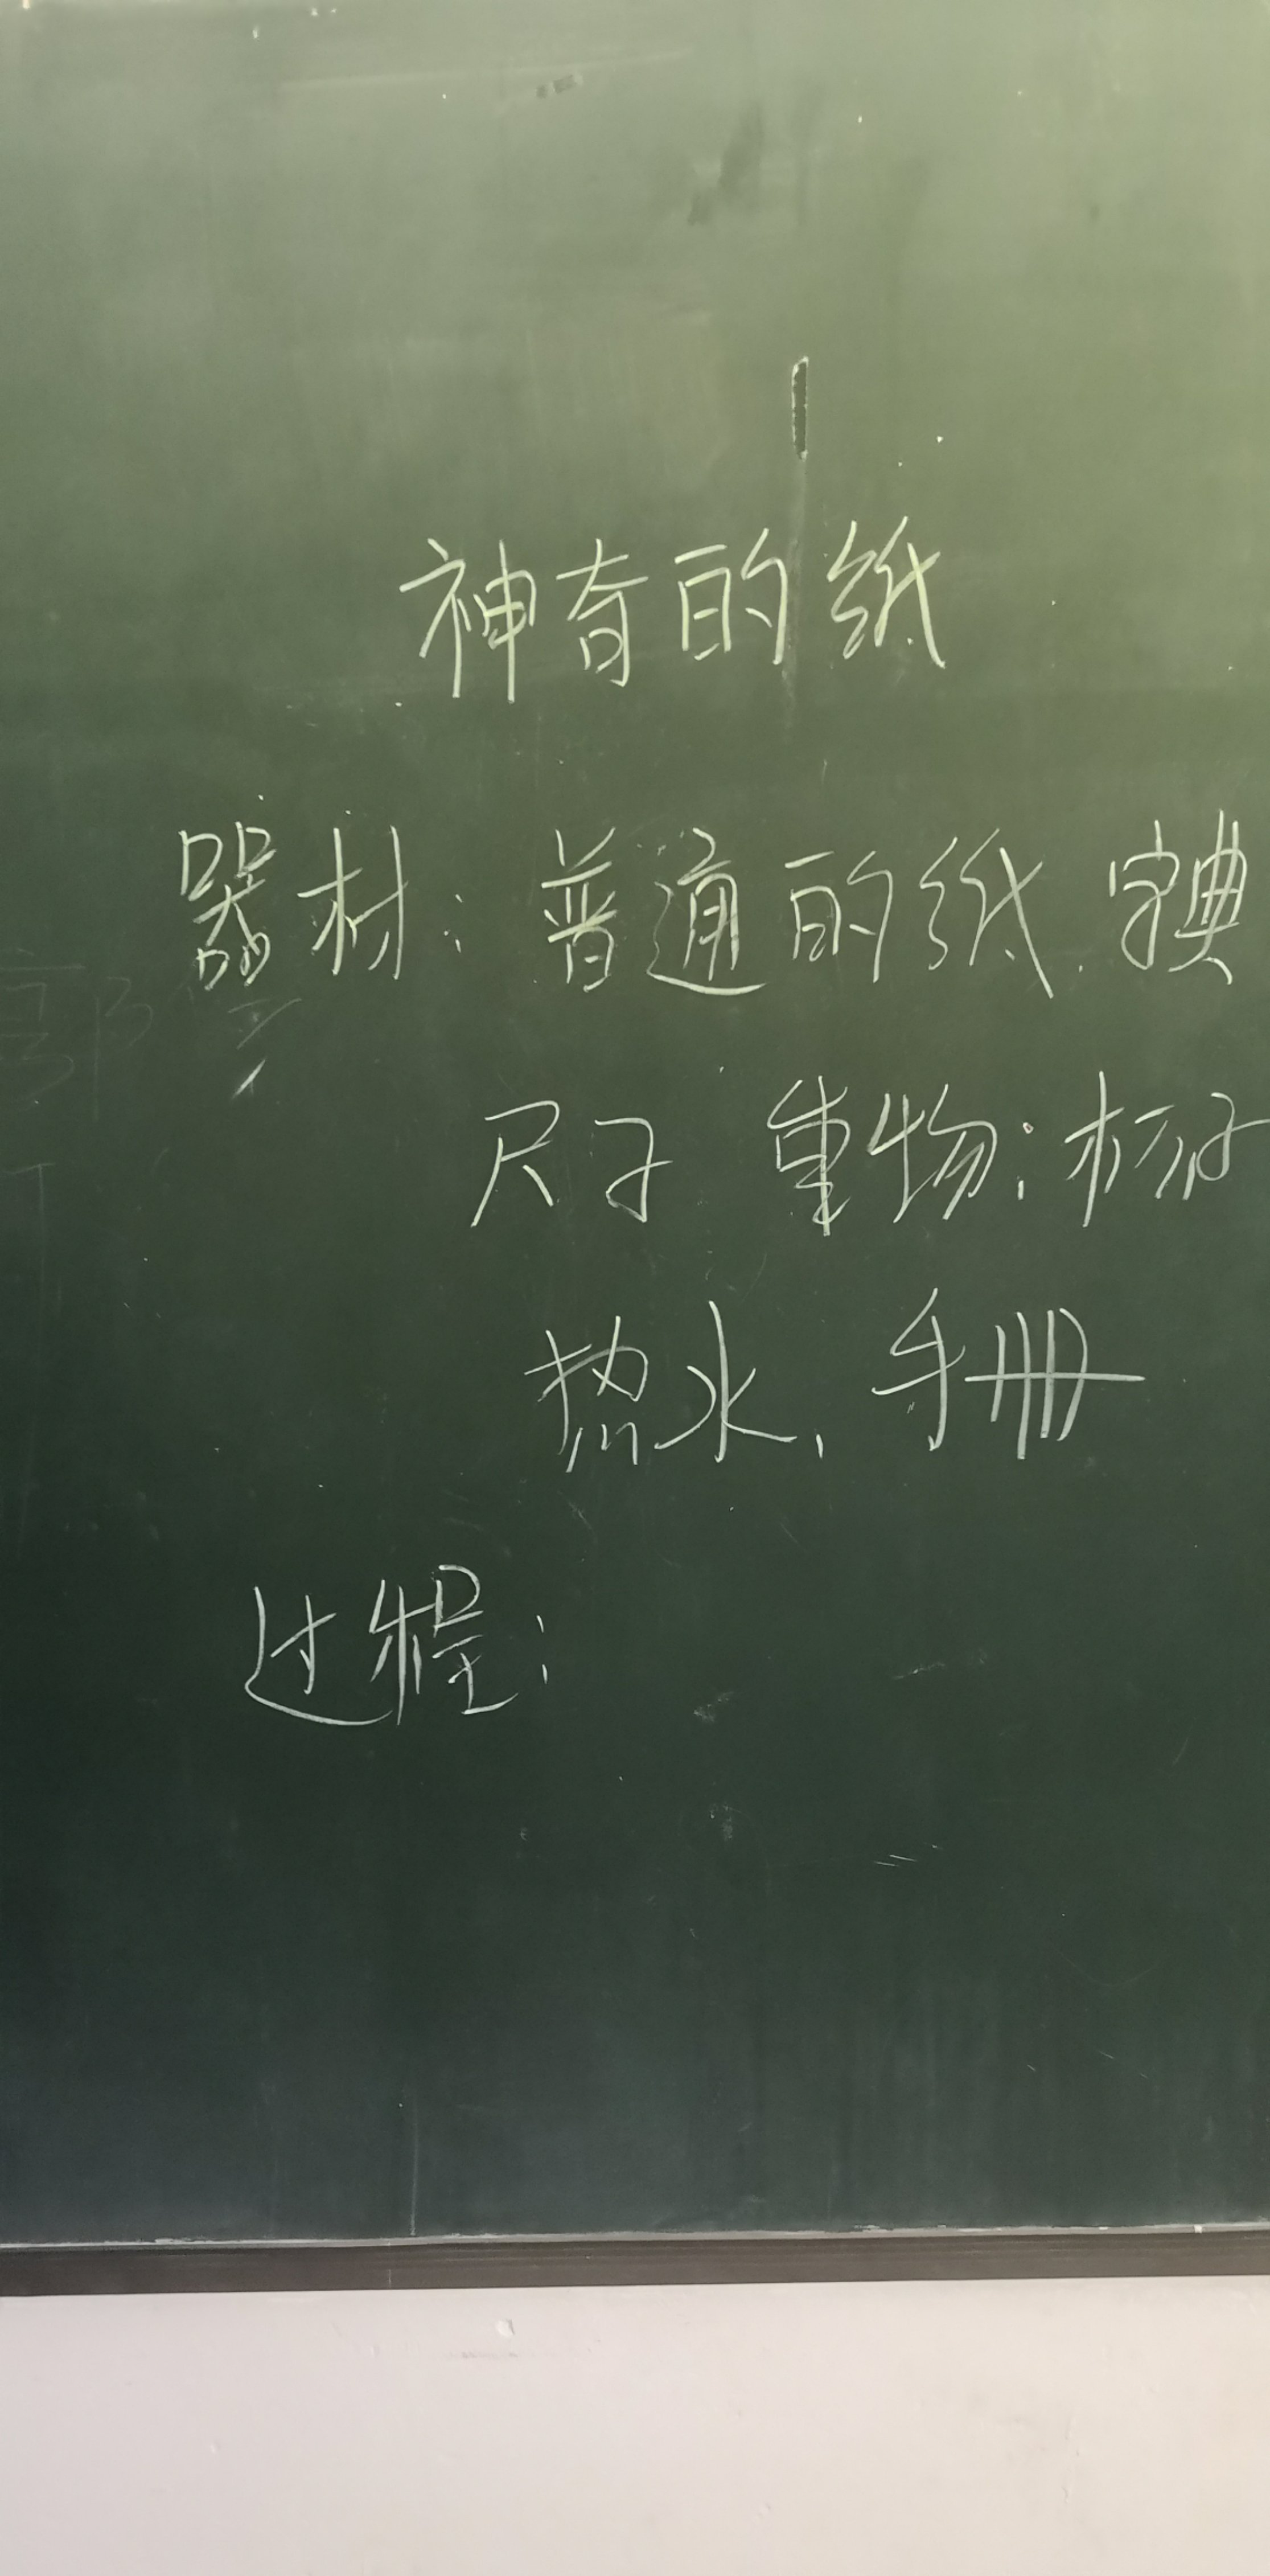 神奇的纸
器材：普通的纸、字典
尺子 重物：杯子
热水、手册
过程：